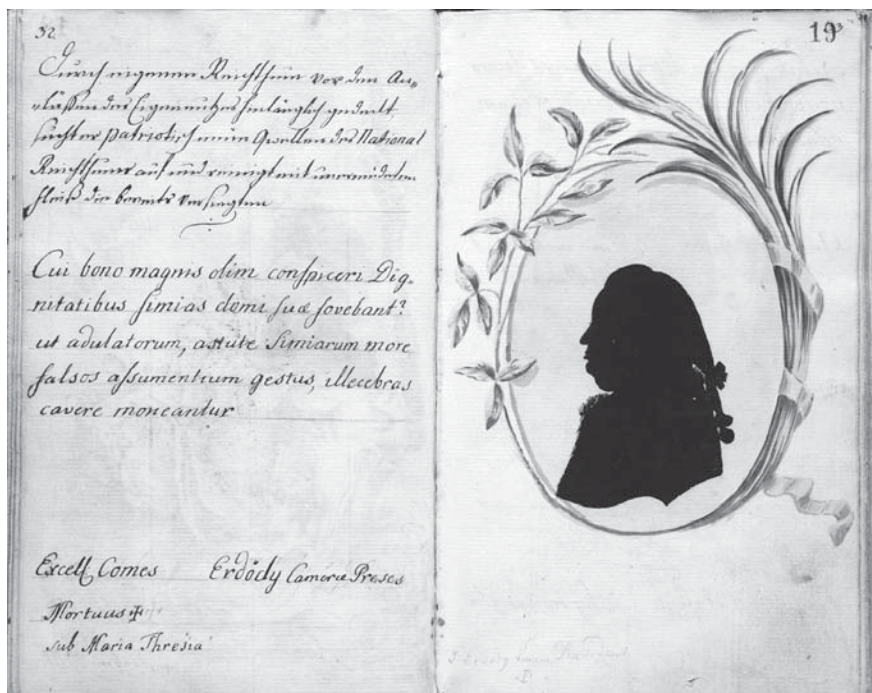 32
Durch eigenen Reichthum vor den An-
läßen des Eigennutzes hinlänglich gedeckt,
sucht er patriotisch neue Quellen des National
Reichthums auf und reinigt mit unermüdetem
fleiß die bereits versiegten
Cui bono magnis olim conspiceri Dig-
nitatibus simias domi suæ fovebant?
ut adulatorum, astute Simiarum more
falsos assumentium gestus, illecebras
cavere moneantur
Excell. Comes Erdödy Cameræ Preses
Mortuus ✝
sub Maria Thresia
19